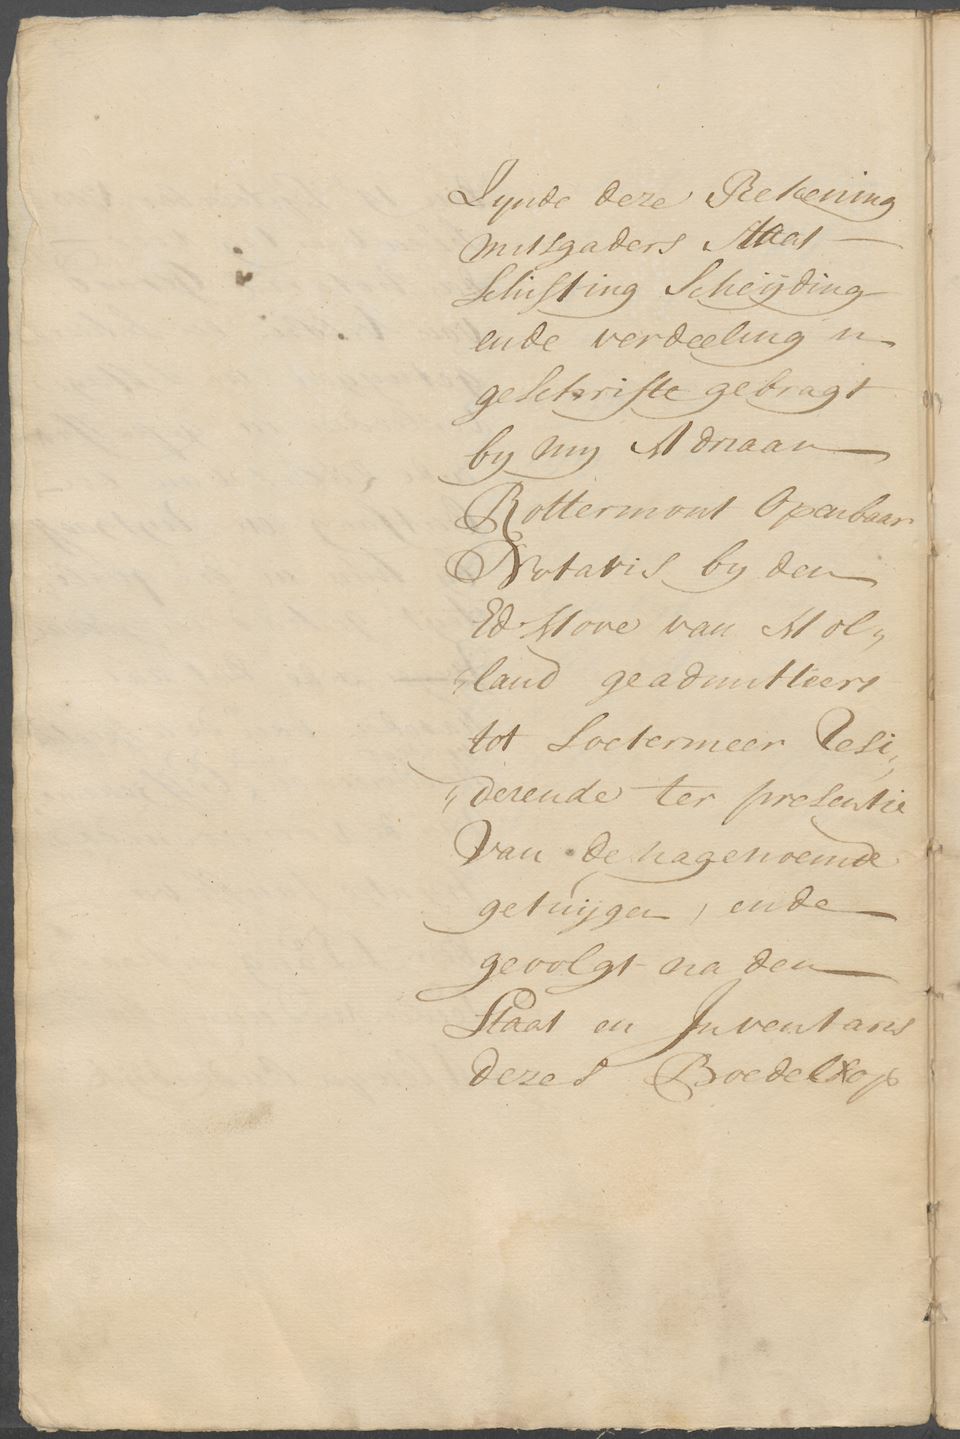 Zynde deze Rekening
mitsgaders Staat
Schifting Scheijding
ende verdeeling in
geschrifte gebragt
by my Adriaan
Rottermont Openbaar
Notaris by den
Ed. Hove van Hol„
„land geadmitteert
tot Soetermeer Resi„
„derende ter presentie
van de nagenoemde
getuijgen, ende
gevolgt na den
Staat en Inventaris
dezes Boedels op